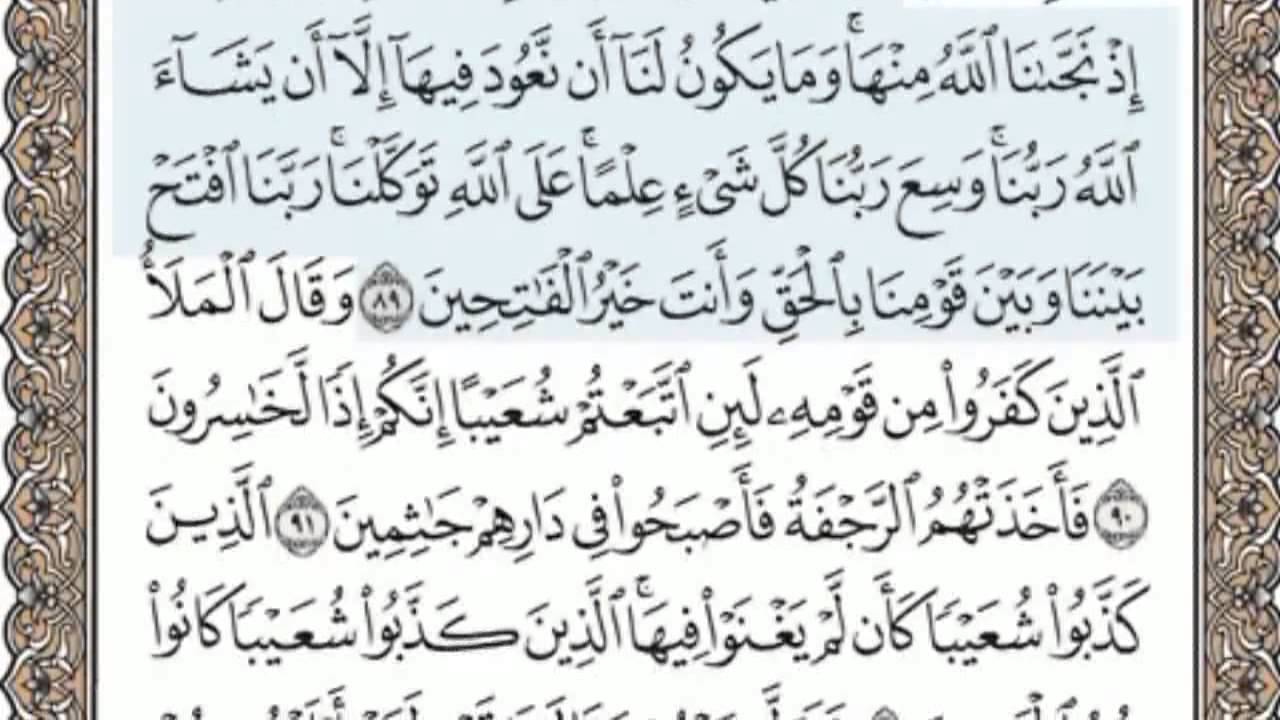 إِذْ نَجَّىٰنَا ٱللَّهُ مِنْهَا ۚ وَمَا يَكُونُ لَنَآ أَن نَّعُودَ فِيهَآ إِلَّآ أَن يَشَآءَ
ٱللَّهُ رَبُّنَا ۚ وَسِعَ رَبُّنَا كُلَّ شَىْءٍ عِلْمًا ۚ عَلَى ٱللَّهِ تَوَكَّلْنَا ۚ رَبَّنَا ٱفْتَحْ
بَيْنَنَا وَبَيْنَ قَوْمِنَا بِٱلْحَقِّ وَأَنتَ خَيْرُ ٱلْفَٰتِحِينَ ٨٩ وَقَالَ ٱلْمَلَأُ
ٱلَّذِينَ كَفَرُوا۟ مِن قَوْمِهِۦ لَئِنِ ٱتَّبَعْتُمْ شُعَيْبًا إِنَّكُمْ إِذًا لَّخَٰسِرُونَ
٩٠ فَأَخَذَتْهُمُ ٱلرَّجْفَةُ فَأَصْبَحُوا۟ فِى دَارِهِمْ جَٰثِمِينَ ٩١ ٱلَّذِينَ
كَذَّبُوا۟ شُعَيْبًا كَأَن لَّمْ يَغْنَوْا۟ فِيهَا ۚ ٱلَّذِينَ كَذَّبُوا۟ شُعَيْبًا كَانُوا۟